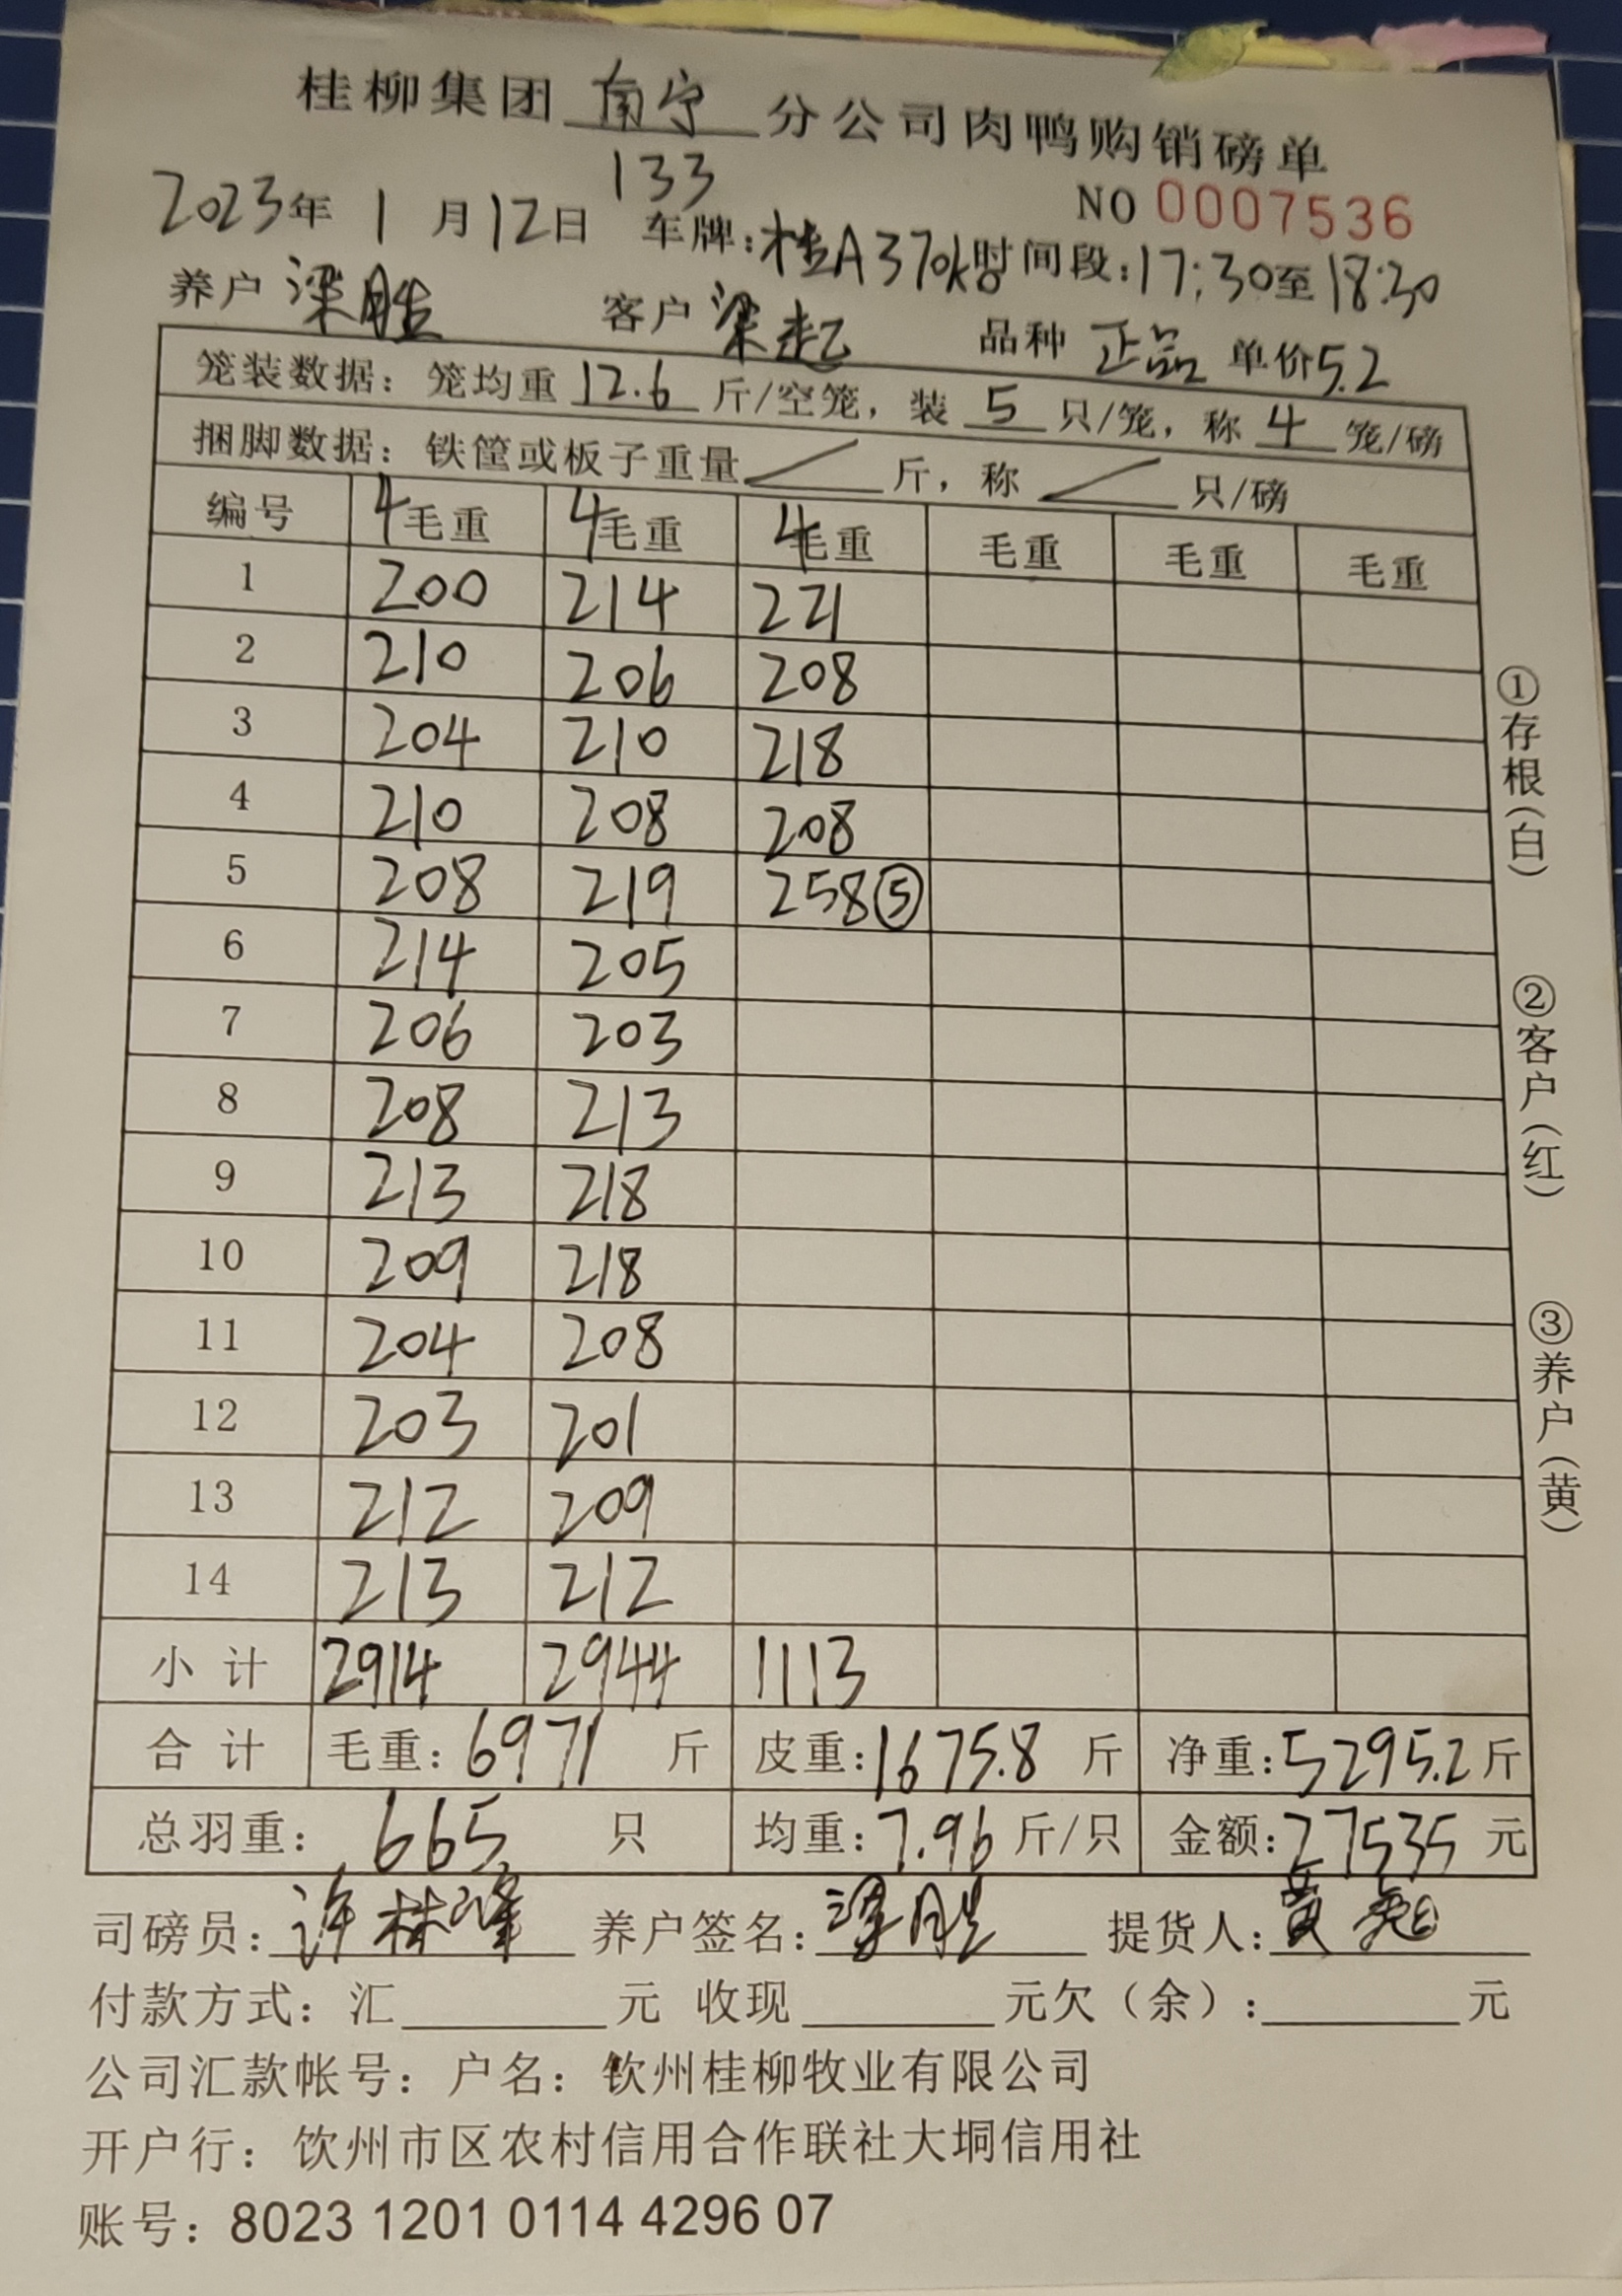 桂柳集团 南宁 分公司肉鸭购销磅单
133
NO 0007536
2023年 1 月12日 车牌:桂A370k 时间段:17:30至18:30
养户 梁胜 客户 梁起 品种 正品 单价5.2
笼装数据: 笼均重 12.6 斤/空笼, 装 5 只/笼, 称 4 笼/磅
捆脚数据: 铁筐或板子重量 / 斤, 称 / 只/磅
编号 4毛重 4毛重 4毛重 毛重 毛重 毛重
1 200 214 221
2 210 206 208
3 204 210 218
4 210 208 208
5 208 219 258⑤
6 214 205
7 206 203
8 208 213
9 213 218
10 209 218
11 204 208
12 203 201
13 212 209
14 213 212
小计 2914 2944 1113
合计 毛重: 6971 斤 皮重:1675.8 斤 净重:5295.2斤
总羽重: 665 只 均重:7.96 斤/只 金额:27535 元
司磅员: 许桂峰 养户签名: 梁胜 提货人: 黄
付款方式: 汇 元 收现 元欠(余): 元
公司汇款帐号: 户名: 钦州桂柳牧业有限公司
开户行: 饮州市区农村信用合作联社大垌信用社
账号: 8023 1201 0114 4296 07
①存根(白)
②客户(红)
③养户(黄)